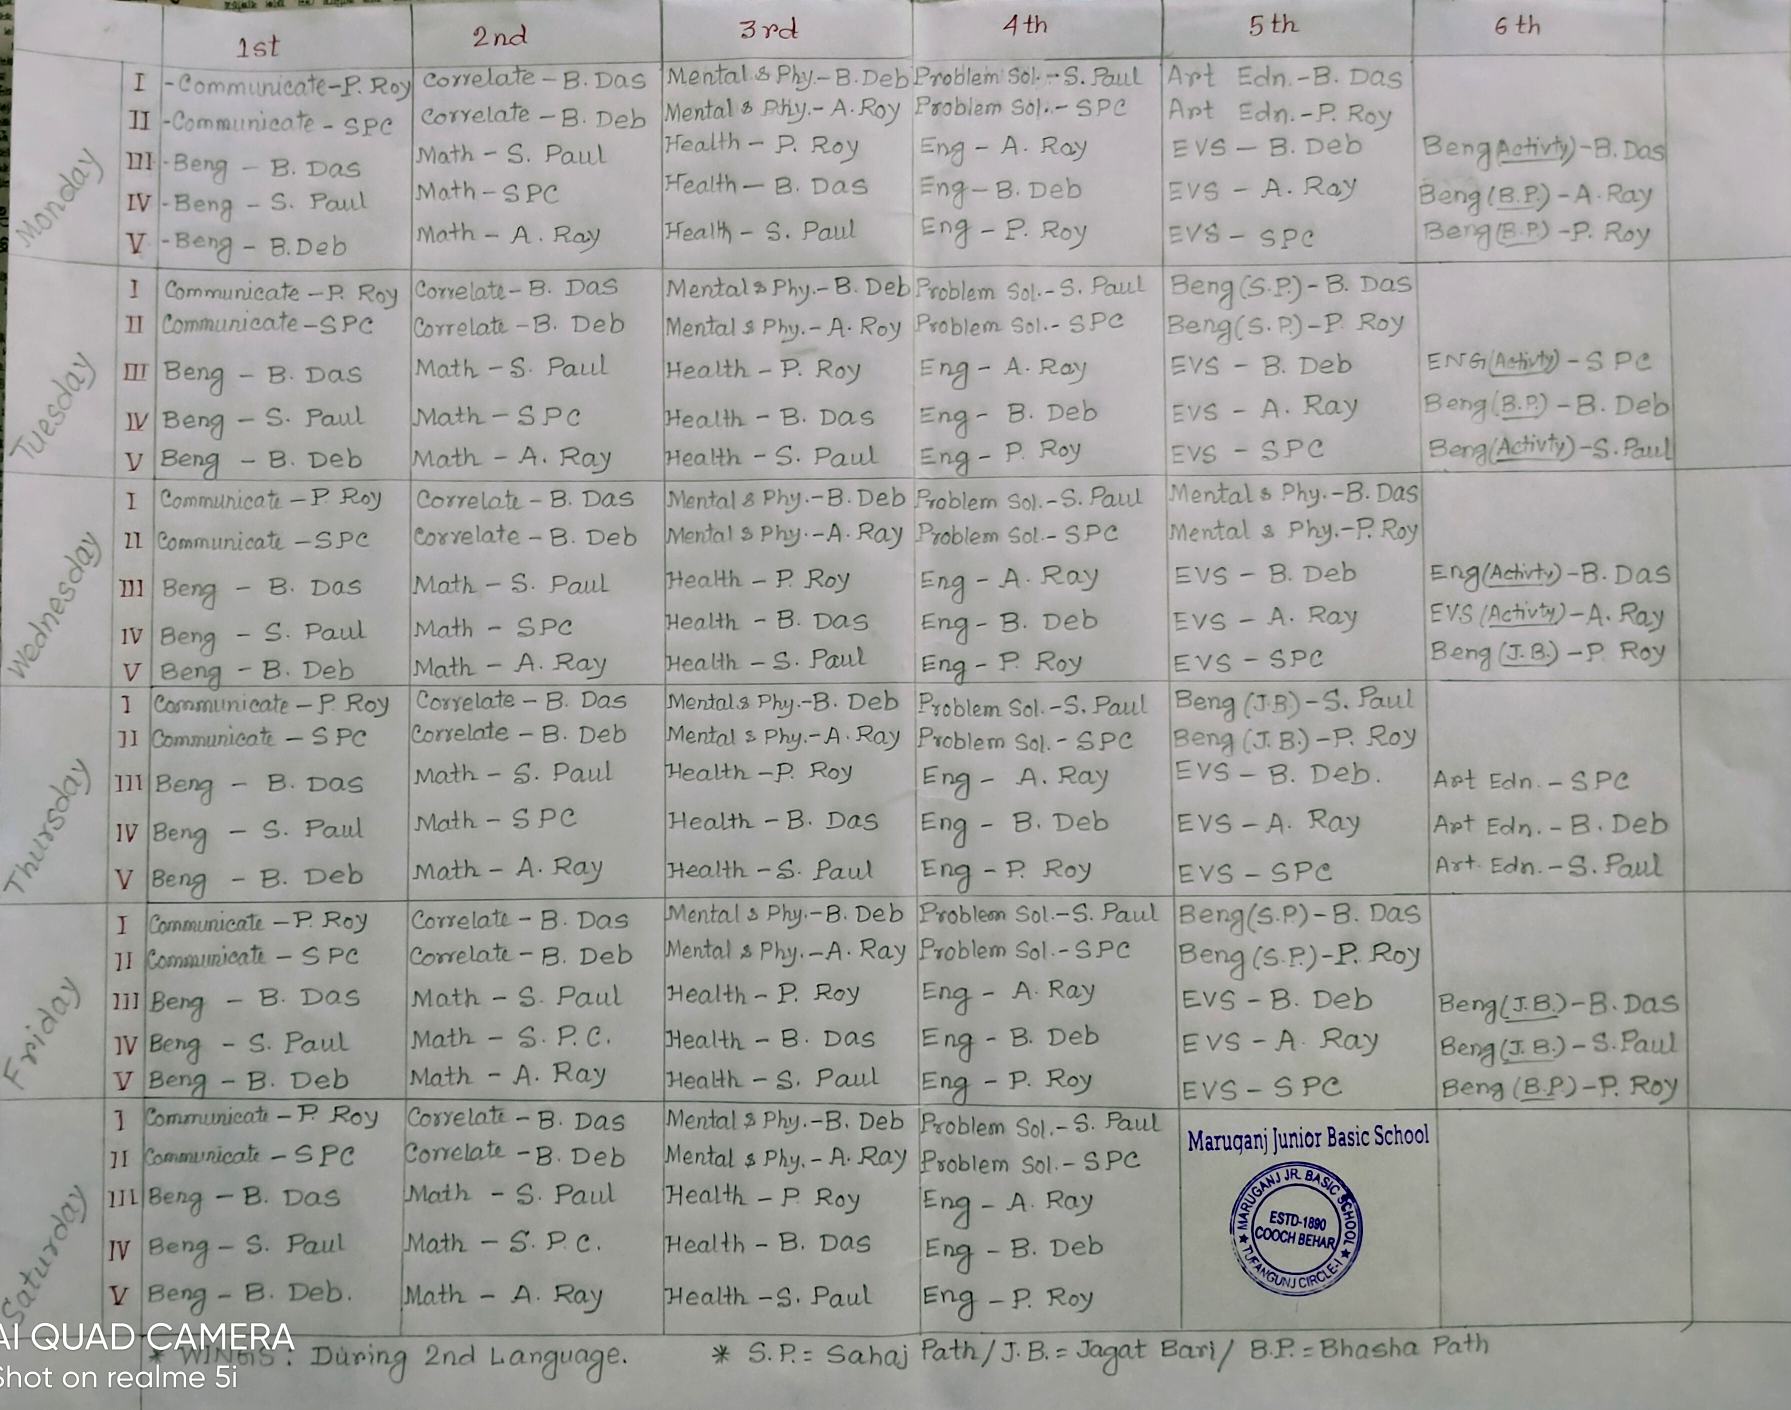 1st 2nd 3rd 4th 5th 6th
Monday
I -Communicate-P. Roy Correlate-B. Das Mental & Phy.-B. Deb Problem Sol.-S. Paul Art Edn.-B. Das
II -Communicate - SPC Correlate-B. Deb Mental & Phy.-A. Roy Problem Sol.-SPC Art Edn.-P. Roy
III -Beng - B. Das Math - S. Paul Health - P. Roy Eng - A. Ray EVS - B. Deb Beng Activty)-B. Das
IV -Beng - S. Paul Math - SPC Health - B. Das Eng - B. Deb EVS - A. Ray Beng (B.P.) - A. Ray
V -Beng - B. Deb Math - A. Ray Health - S. Paul Eng - P. Roy EVS - SPC Beng (B.P) - P. Roy
Tuesday
I Communicate - P. Roy Correlate - B. Das Mental & Phy.- B. Deb Problem Sol.-S. Paul Beng (S.P.)-B. Das
II Communicate -SPC Correlate -B. Deb Mental & Phy.-A. Roy Problem Sol.- SPC Beng (S.P.)-P. Roy
III Beng - B. Das Math - S. Paul Health - P. Roy Eng - A. Ray EVS - B. Deb ENG (Activty) - SPC
IV Beng - S. Paul Math - SPC Health - B. Das Eng - B. Deb EVS - A. Ray Beng (B.P.) - B. Deb
V Beng - B. Deb Math - A. Ray Health - S. Paul Eng - P. Roy EVS - SPC Beng (Activty)-S. Paul
Wednesday
I Communicate - P. Roy Correlate - B. Das Mental & Phy.-B. Deb Problem Sol.-S. Paul Mental & Phy.-B. Das
II Communicate -SPC Correlate - B. Deb Mental & Phy.-A. Ray Problem Sol.- SPC Mental & Phy.-P. Roy
III Beng - B. Das Math - S. Paul Health - P. Roy Eng - A. Ray EVS - B. Deb Eng (Activty)-B. Das
IV Beng - S. Paul Math - SPC Health - B. Das Eng - B. Deb EVS - A. Ray EVS (Activty)-A. Ray
V Beng - B. Deb Math - A. Ray Health - S. Paul Eng - P. Roy EVS - SPC Beng (J.B.) - P. Roy
Thursday
I Communicate - P. Roy Correlate - B. Das Mental & Phy.-B. Deb Problem Sol.-S. Paul Beng (J.B)-S. Paul
II Communicate - SPC Correlate - B. Deb Mental & Phy.-A. Ray Problem Sol.- SPC Beng (J.B.)-P. Roy
III Beng - B. Das Math - S. Paul Health -P. Roy Eng - A. Ray EVS - B. Deb. Art Edn. - SPC
IV Beng - S. Paul Math - SPC Health - B. Das Eng - B. Deb EVS - A. Ray Art Edn. - B. Deb
V Beng - B. Deb Math - A. Ray Health - S. Paul Eng - P. Roy EVS - SPC Art. Edn. - S. Paul
Friday
I Communicate - P. Roy Correlate - B. Das Mental & Phy.-B. Deb Problem Sol.-S. Paul Beng (S.P.) - B. Das
II Communicate - SPC Correlate - B. Deb Mental & Phy.-A. Ray Problem Sol.-SPC Beng (S.P.)-P. Roy
III Beng - B. Das Math - S. Paul Health - P. Roy Eng - A. Ray EVS - B. Deb Beng (J.B.)-B. Das
IV Beng - S. Paul Math - S. P. C. Health - B. Das Eng - B. Deb EVS - A. Ray Beng (J.B.) - S. Paul
V Beng - B. Deb Math - A. Ray Health - S. Paul Eng - P. Roy EVS - SPC Beng (B.P.)-P. Roy
Saturday
I Communicate - P. Roy Correlate - B. Das Mental & Phy.-B. Deb Problem Sol.-S. Paul
II Communicate - SPC Correlate - B. Deb Mental & Phy.-A. Ray Problem Sol.- SPC
III Beng - B. Das Math - S. Paul Health - P. Roy Eng - A. Ray
IV Beng - S. Paul Math - S. P. C. Health - B. Das Eng - B. Deb
V Beng - B. Deb. Math - A. Ray Health -S. Paul Eng - P. Roy
Maruganj Junior Basic School
MARUGANJ JR. BASIC SCHOOL
ESTD-1890
COOCH BEHAR
TUFANGUNJ CIRCLE-I
* WINGS: During 2nd Language. * S.P.= Sahaj Path/ J.B.= Jagat Bari/ B.P.= Bhasha Path
AI QUAD CAMERA
Shot on realme 5i